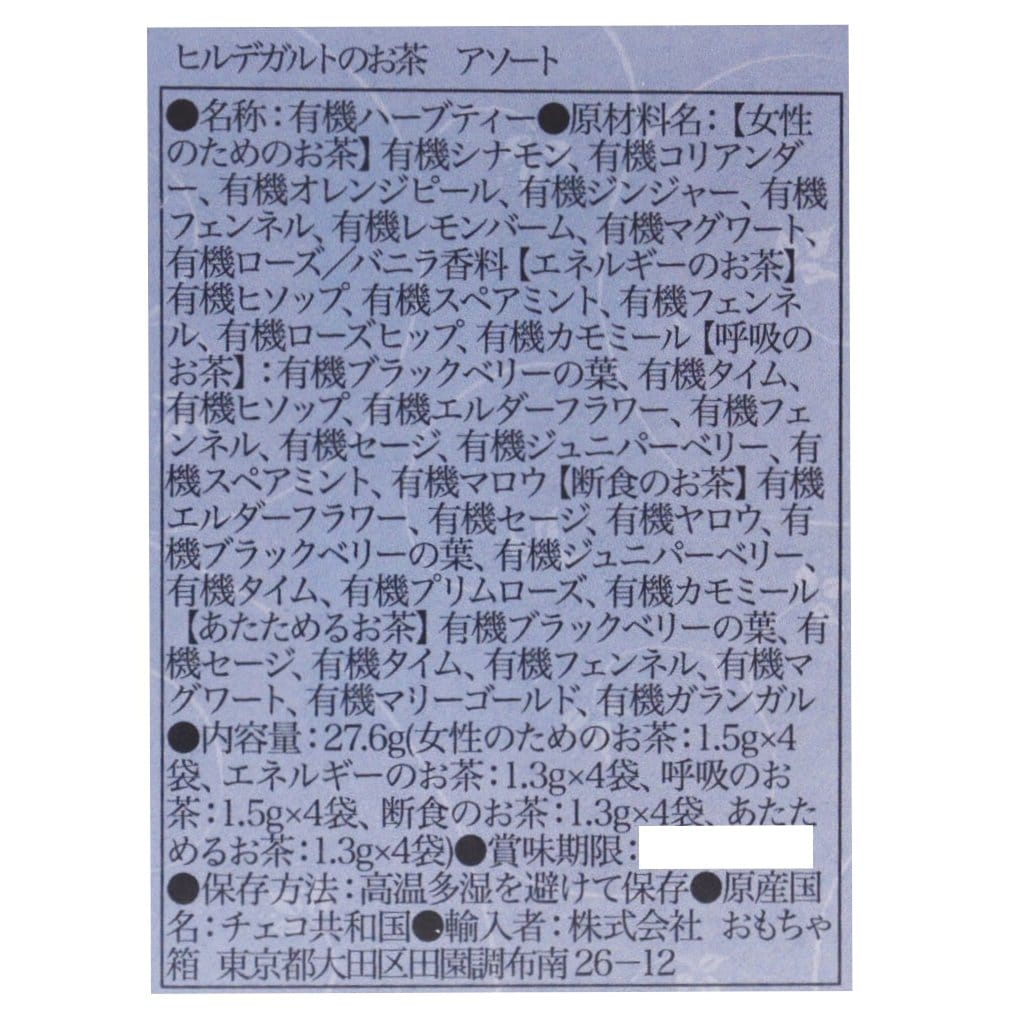 ヒルデガルトのお茶　アソート
●名称：有機ハーブティー●原材料名：【女性
のためのお茶】有機シナモン、有機コリアンダ
ー、有機オレンジピール、有機ジンジャー、有機
フェンネル、有機レモンバーム、有機マグワート、
有機ローズ／バニラ香料【エネルギーのお茶】
有機ヒソップ、有機スペアミント、有機フェンネ
ル、有機ローズヒップ、有機カモミール【呼吸の
お茶】：有機ブラックベリーの葉、有機タイム、
有機ヒソップ、有機エルダーフラワー、有機フェ
ンネル、有機セージ、有機ジュニパーベリー、有
機スペアミント、有機マロウ【断食のお茶】有機
エルダーフラワー、有機セージ、有機ヤロウ、有
機ブラックベリーの葉、有機ジュニパーベリー、
有機タイム、有機プリムローズ、有機カモミール
【あたためるお茶】有機ブラックベリーの葉、有
機セージ、有機タイム、有機フェンネル、有機マ
グワート、有機マリーゴールド、有機ガランガル
●内容量：27.6g(女性のためのお茶：1.5g×4
袋、エネルギーのお茶：1.3g×4袋、呼吸のお
茶：1.5g×4袋、断食のお茶：1.3g×4袋、あたた
めるお茶：1.3g×4袋)●賞味期限：
●保存方法：高温多湿を避けて保存●原産国
名：チェコ共和国●輸入者：株式会社 おもちゃ
箱 東京都大田区田園調布南26－12